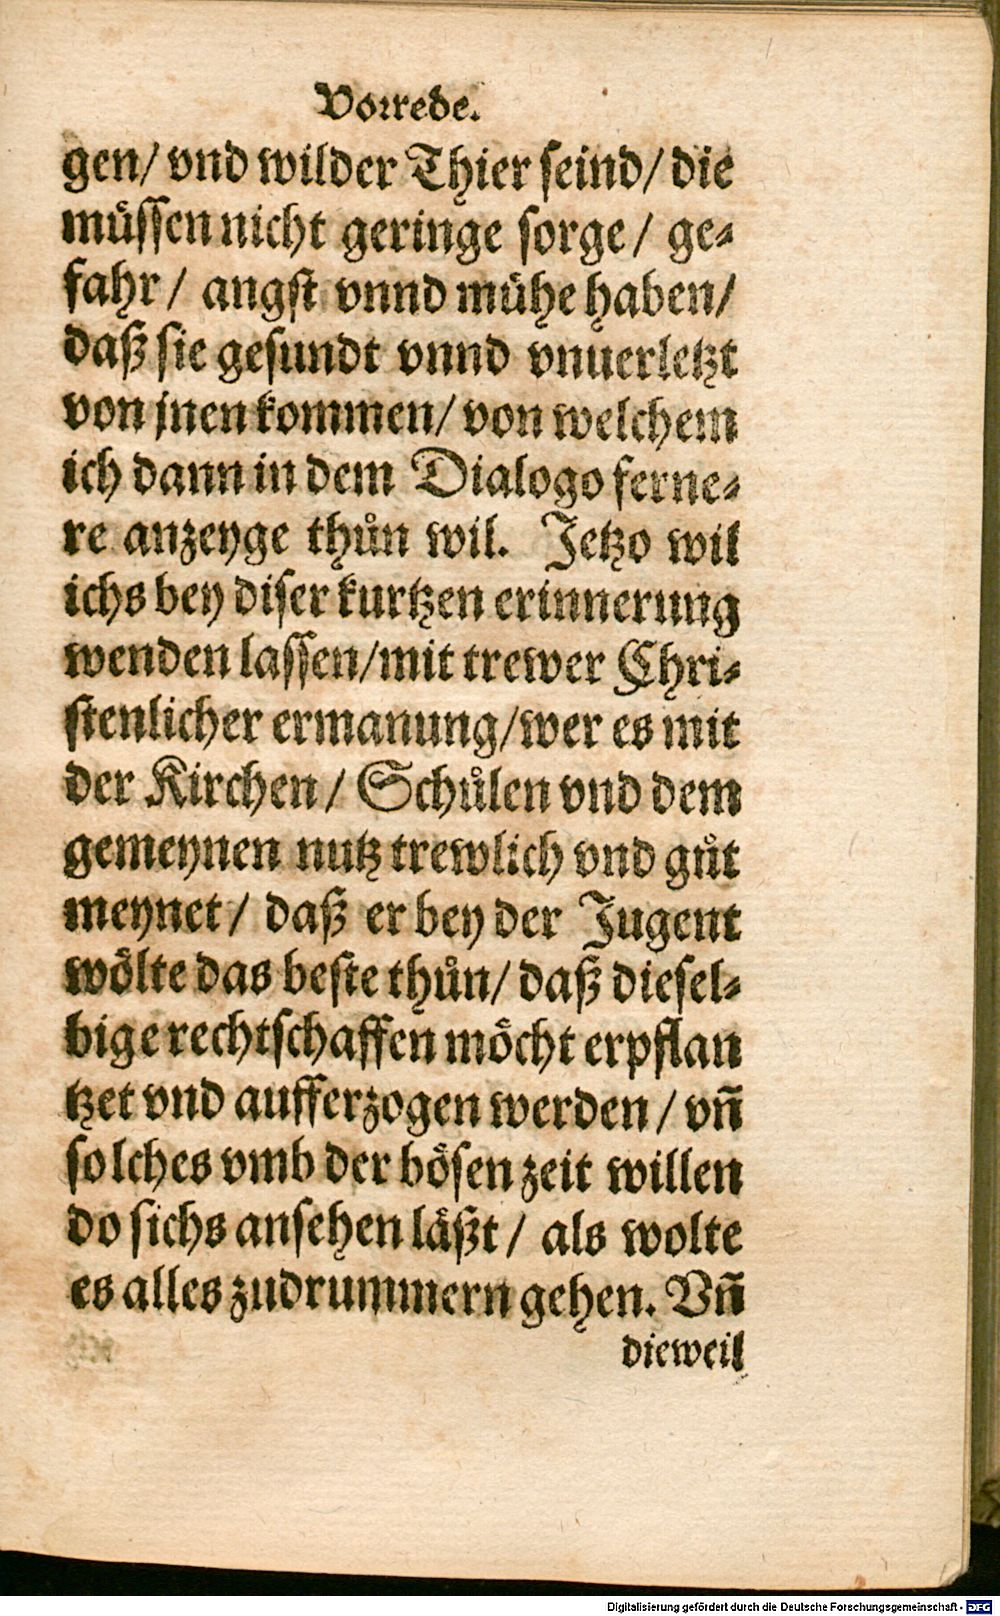 Vorrede.
gen/ vnd wilder Thier seind/ die
müssen nicht geringe sorge/ ge-
fahr/ angst vnnd mühe haben/
daß sie gesundt vnnd vnuerletzt
von jnen kommen/ von welchem
ich dann in dem Dialogo ferne-
re anzeyge thůn wil. Jetzo wil
ichs bey diser kurtzen erinnerung
wenden lassen/mit trewer Chri-
stenlicher ermanung/wer es mit
der Kirchen/ Schůlen vnd dem
gemeynen nutz trewlich vnd gůt
meynet/ daß er bey der Jugent
wölte das beste thůn/ daß diesel-
bige rechtschaffen möcht erpflan
tzet vnd aufferzogen werden/ vñ
solches vmb der bösen zeit willen
do sichs ansehen läßt/ als wolte
es alles zudrummern gehen. Vñ
dieweil
Digitalisierung gefördert durch die Deutsche Forschungsgemeinschaft - DFG